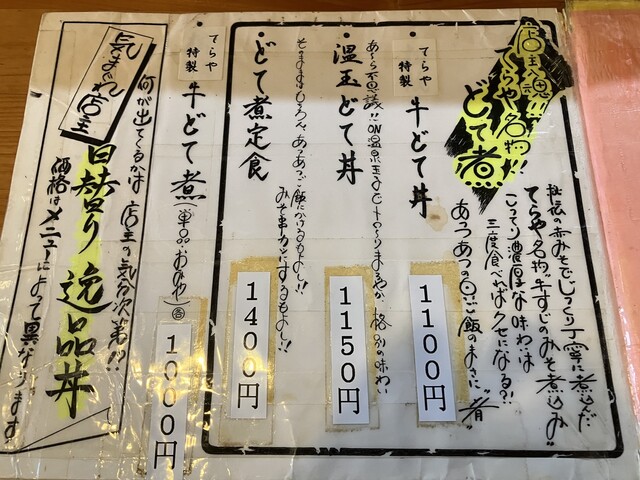 店主入魂!!
てらや名物!!
どて煮
秘伝の赤みそでじっくり丁寧に煮込んだ
てらや名物“牛すじのみそ煮込み”
こってり濃厚な味わいは
三度食べればクセになる?!
あつあつの白ご飯のお供に
てらや
特製
牛どて丼
1100円
温玉どて丼
あ〜ら不思議!! ON温泉玉子で
まろやか 格別の味わい
1150円
どて煮定食
そのままはもちろん、あつあつご飯にかけるもよし!!
みそ串カツにするもよし!!
1400円
てらや
特製
牛どて煮(単品・おみや)
各
1000円
気まぐれ店主
日替り逸品丼
何が出てくるかは店主の気分次第!?
価格はメニューによって異なります